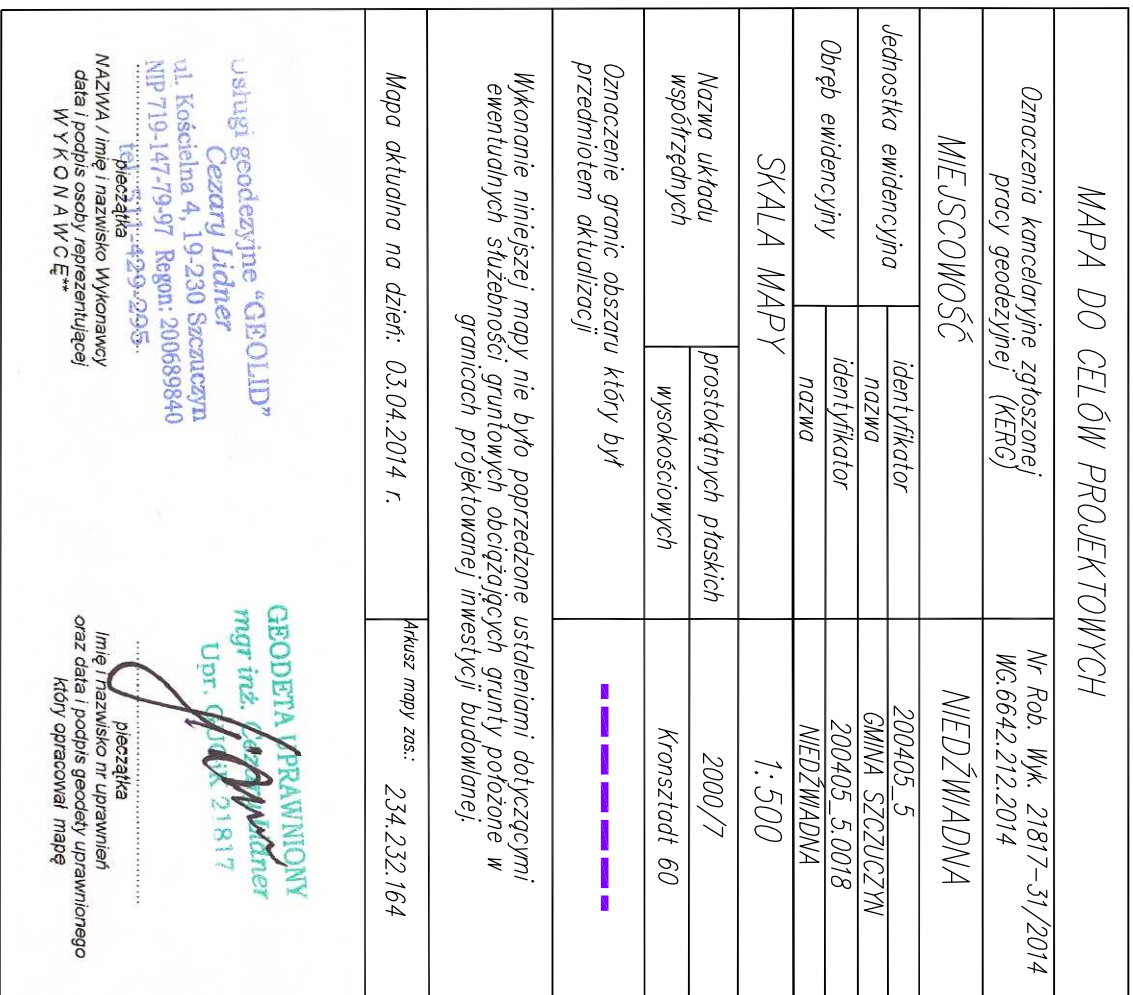 MAPA DO CELÓW PROJEKTOWYCH
Oznaczenia kancelaryjne zgłoszonej
pracy geodezyjnej (KERG)
Nr Rob. Wyk. 21817-31/2014
WG.6642.212.2014
MIEJSCOWOŚĆ
NIEDŹWIADNA
Jednostka ewidencyjna
identyfikator
200405_5
nazwa
GMINA SZCZUCZYN
Obręb ewidencyjny
identyfikator
200405_5.0018
nazwa
NIEDŹWIADNA
SKALA MAPY
1:500
Nazwa układu
współrzędnych
prostokątnych płaskich
2000/7
wysokościowych
Kronsztadt 60
Oznaczenie granic obszaru który był
przedmiotem aktualizacji
Wykonanie niniejszej mapy nie było poprzedzone ustaleniami dotyczącymi
ewentualnych służebności gruntowych obciążających grunty położone w
granicach projektowanej inwestycji budowlanej.
Mapa aktualna na dzień: 03.04.2014 r.
Arkusz mapy zas.:
234.232.164
Usługi geodezyjne "GEOLID"
Cezary Lidner
ul. Kościelna 4, 19-230 Szczuczyn
NIP 719-147-79-97 Regon: 200689840
tel. 511-429-295
pieczątka
NAZWA / imię i nazwisko Wykonawcy
data i podpis osoby reprezentującej
W Y K O N A W C Ę**
GEODETA UPRAWNIONY
mgr inż. Cezary Lidner
Upr. GUGiK 21817
pieczątka
Imię i nazwisko nr uprawnień
oraz data i podpis geodety uprawnionego
który opracował mapę